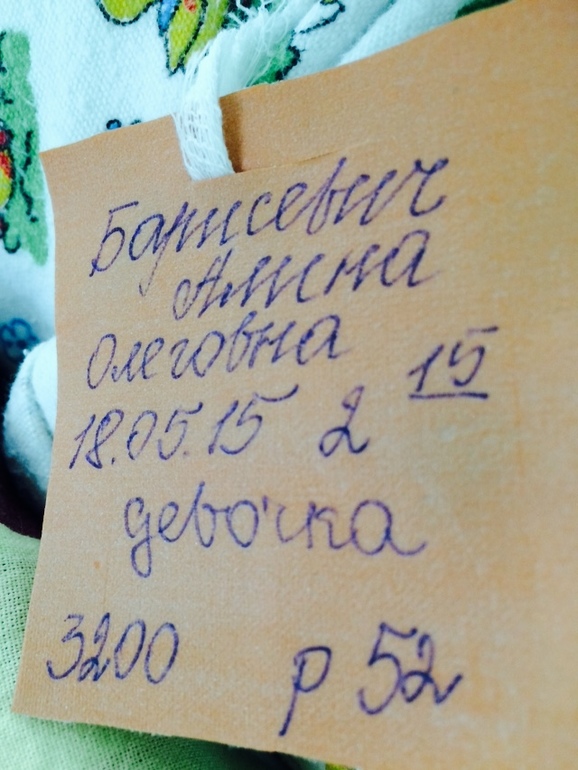 Барисевич
Алина
Олеговна
18.05.15 2 15
девочка
3200 р 52